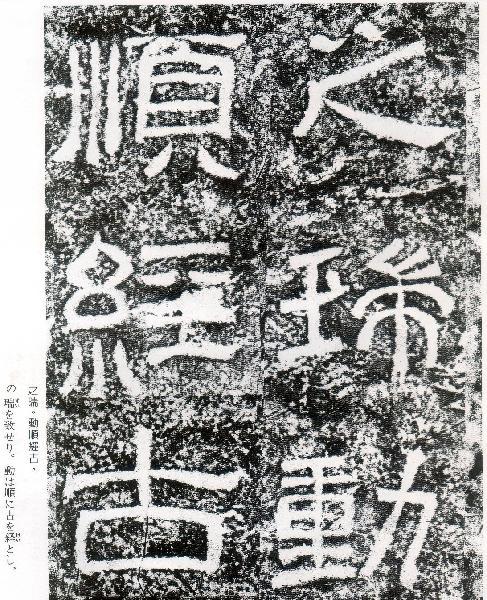 之瑞動
順經古
之瑞。動順經古。
の瑞を致せり。動は順に古を經とし、